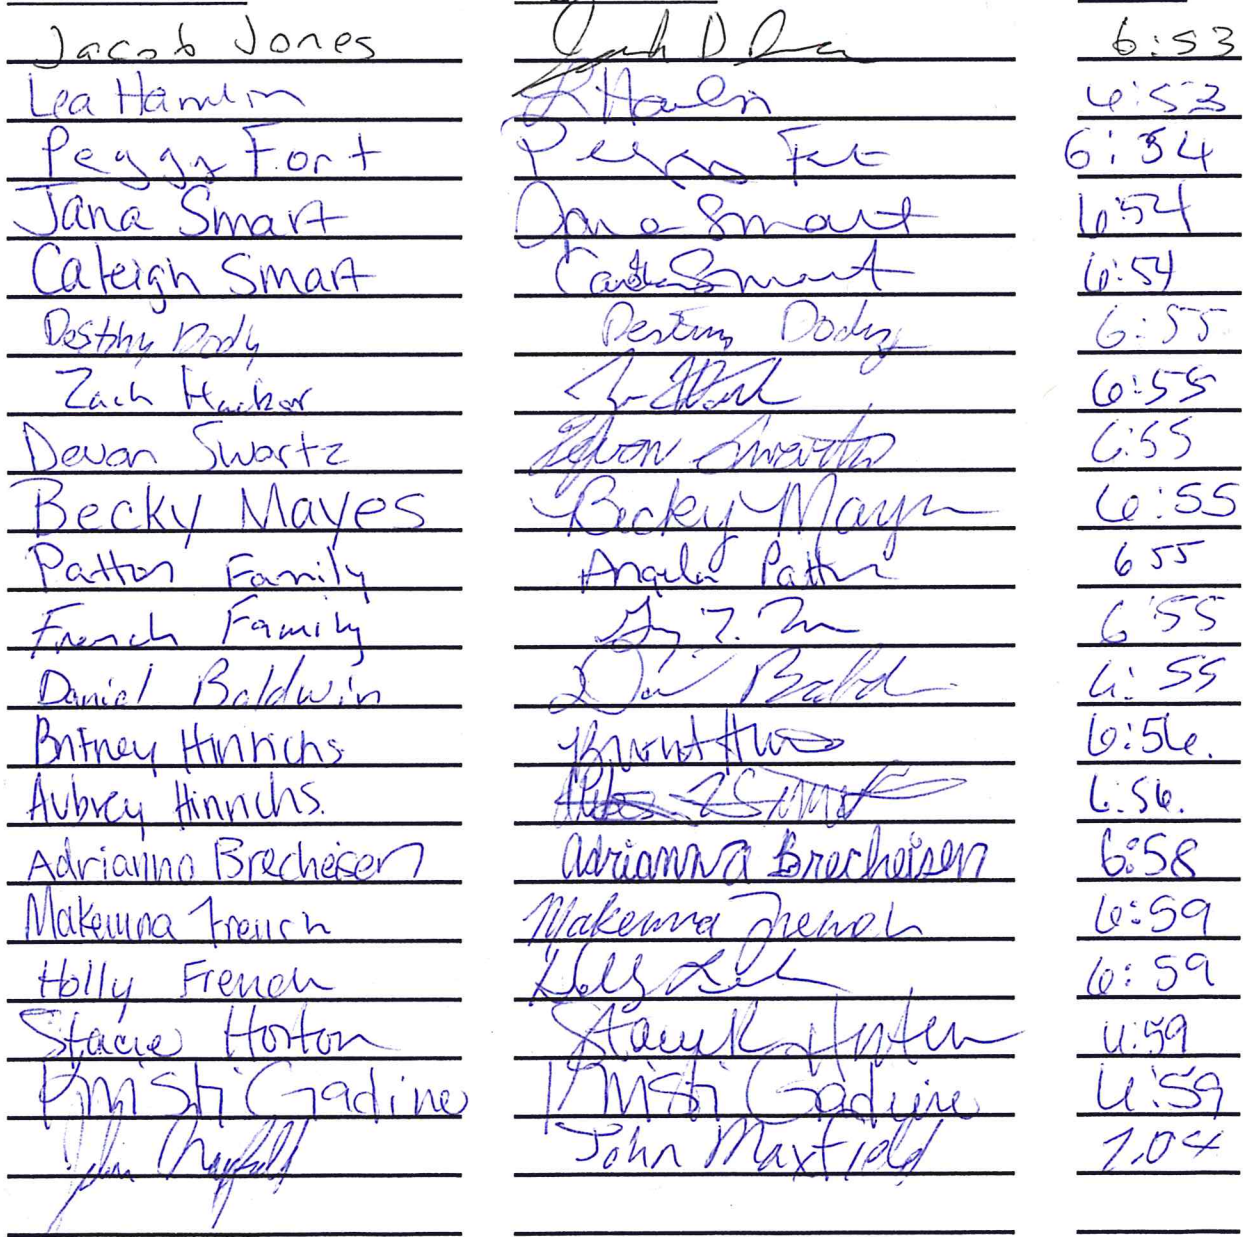 Jacob Jones 6:53
Lea Hamlin L Hamlin 6:53
Peggy Fort Peggy Fort 6:54
Jana Smart Jana Smart 6:54
Caleigh Smart Smart 6:54
Destiny Dody Destiny Dody 6:55
Zach Hacker 6:55
Devon Swartz Devon Swartz 6:55
Becky Mayes Becky Mayes 6:55
Patton Family Angela Patton 6 55
French Family 6:55
Daniel Baldwin 6:55
Britney Hinrichs 6:56.
Aubrey Hinrichs. 6:56.
Adrianna Brecheisen Adrianna Brecheisen 6:58
Makenna French Makenna French 6:59
Holly French Holly 6:59
Stacie Horton Horton 6:59
Kristi Gadino Kristi 6:59
John Maxfield John Maxfield 7:04